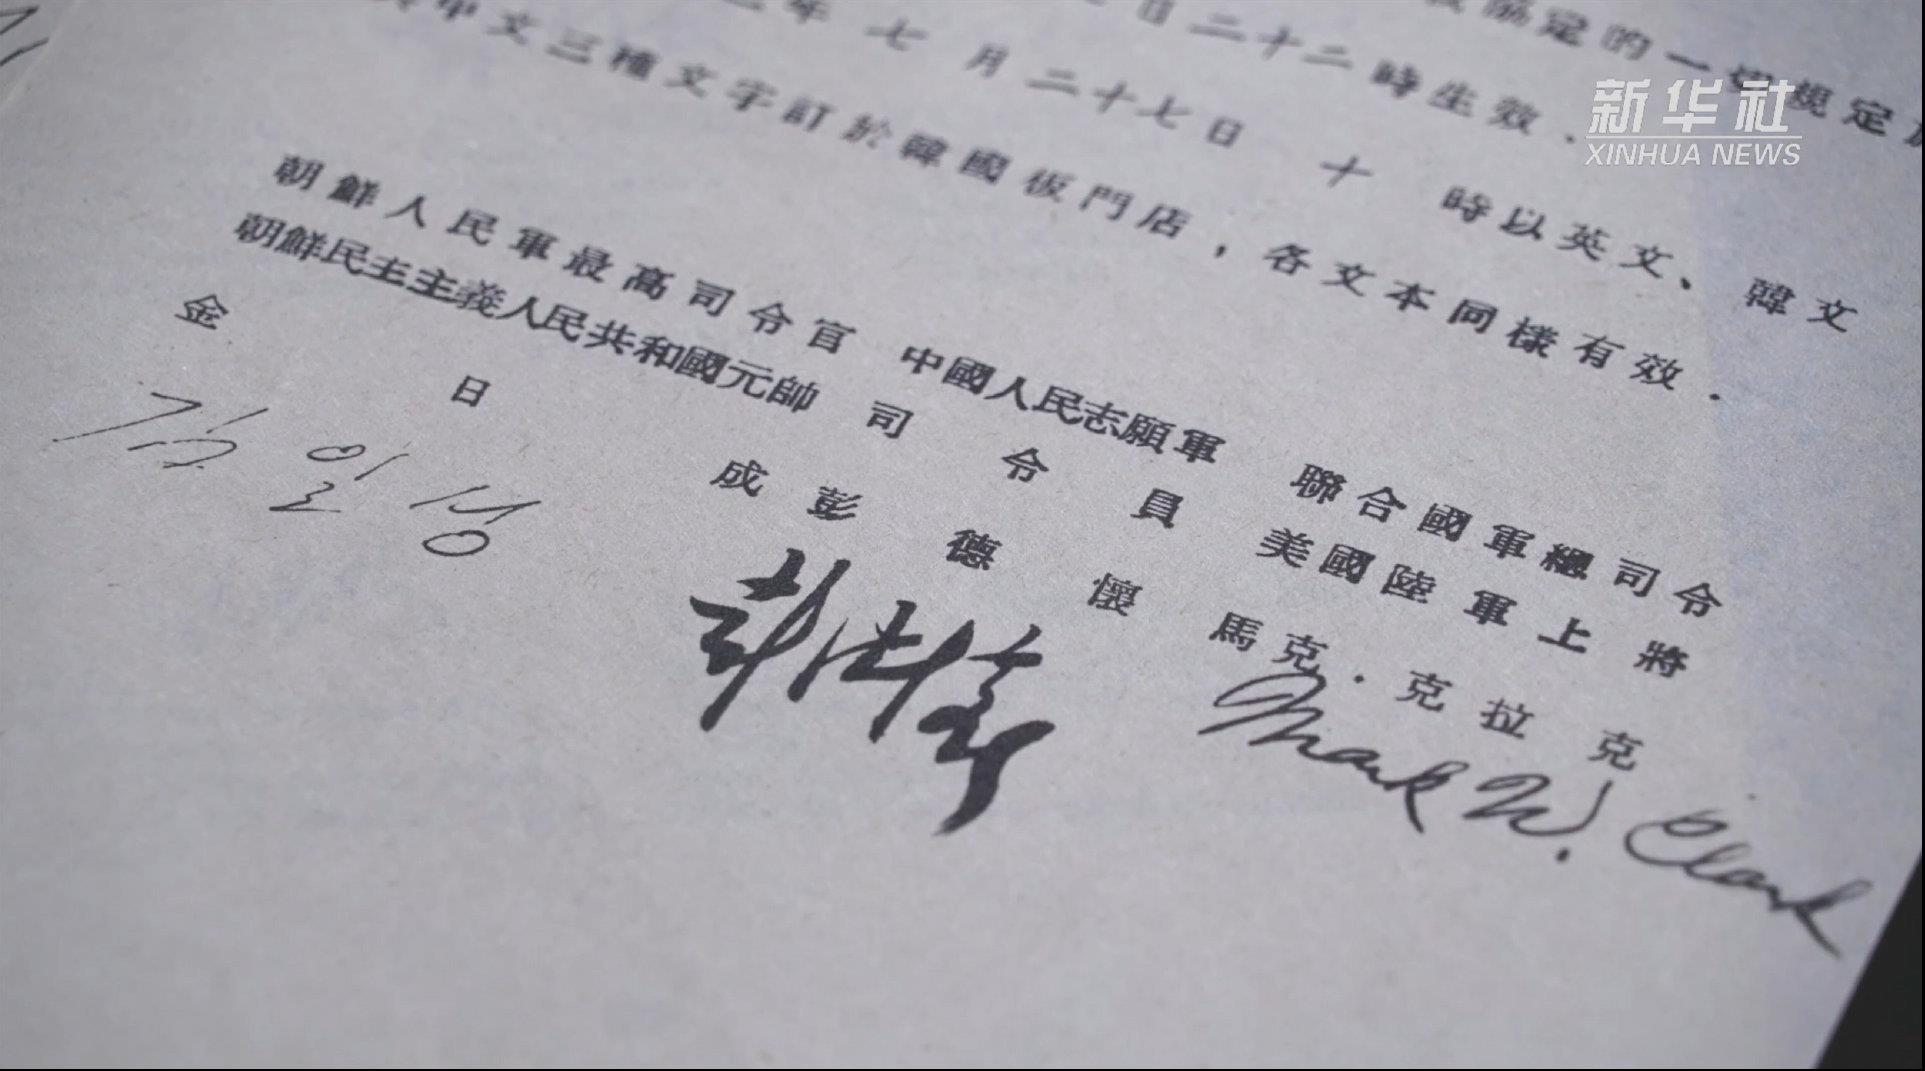 協定的一切規定
日二十二時生效．
年 七 月 二十七日 十 時以英文、韓文
中文三種文字訂於韓國板門店，各文本同樣有效．
朝鮮人民軍最高司令官 中國人民志願軍 聯合國軍總司令
朝鮮民主主義人民共和國元帥 司令員 美國陸軍上將
金 日 成 彭 德 懷 馬克．克拉克
김일성 彭德懷 Mark W. Clark
新华社
XINHUA NEWS